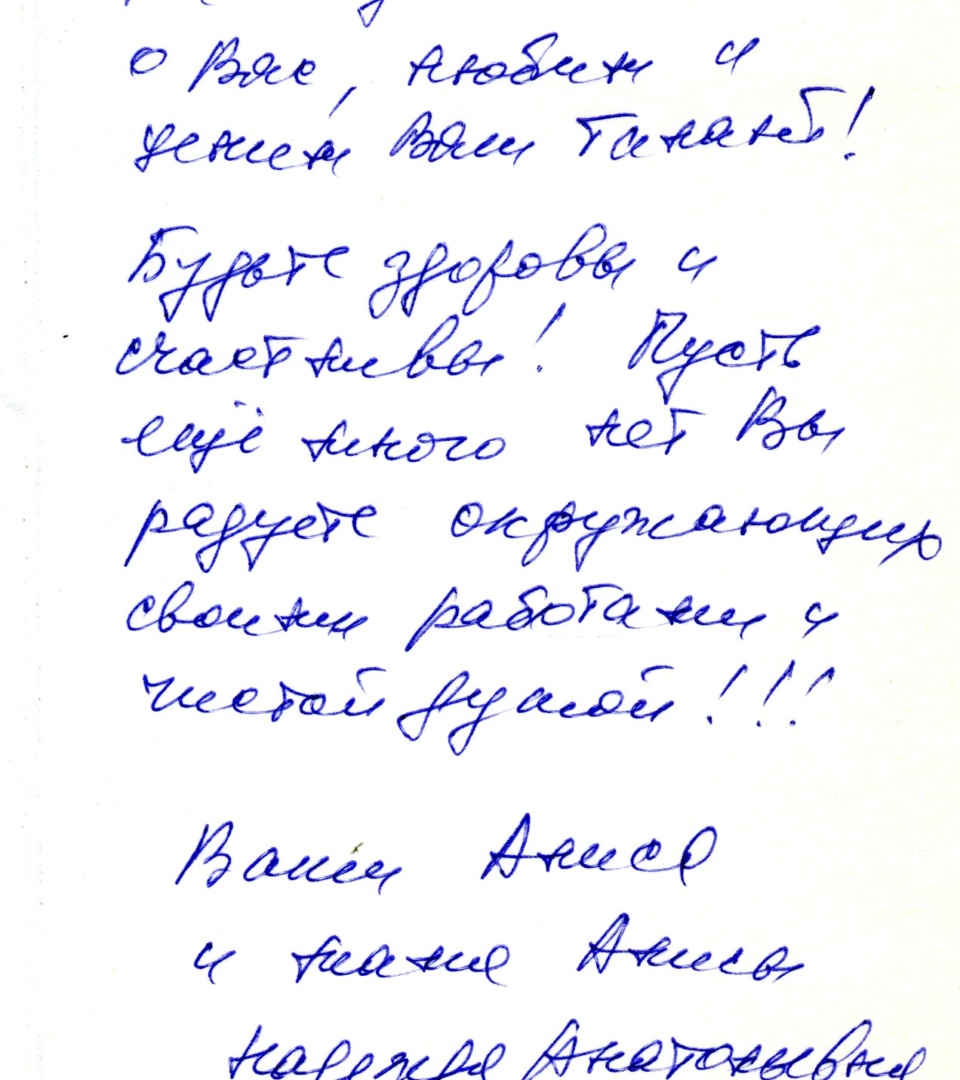 о Вас, любим и
ценим Ваш талант!
Будьте здоровы и
счастливы! Пусть
ещё много лет Вы
радуете окружающих
своими работами и
чистой душой!!!
Ваши Алиса
и мама Алисы
Надежда Анатольевна